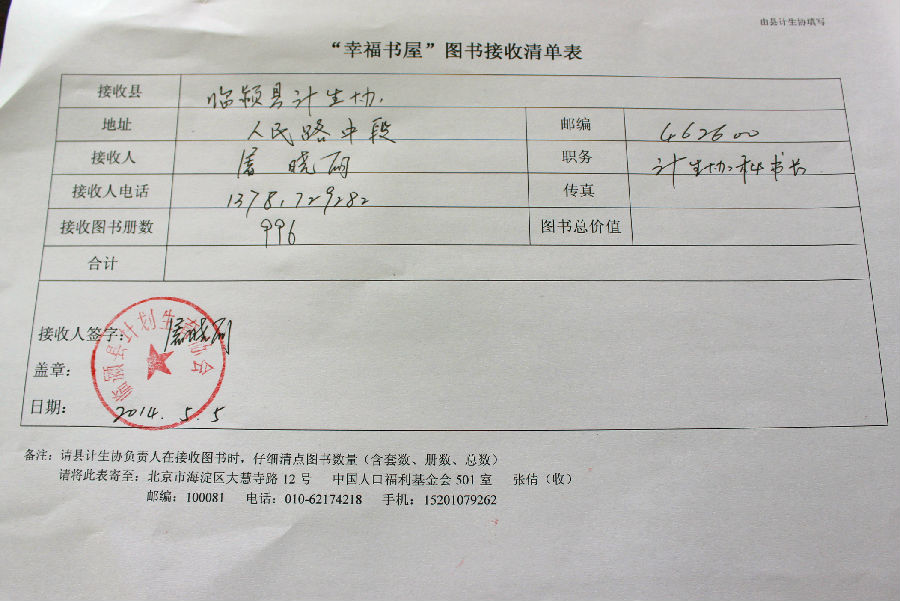 由县计生协填写
“幸福书屋”图书接收清单表
接收县 临颍县计生协.
地址 人民路中段 邮编 462600
接收人 晓丽 职务 计生协秘书长
接收人电话 13781729282 传真
接收图书册数 996 图书总价值
合计
接收人签字： 晓丽
盖章：
临颍县计划生育协会
日期： 2014. 5. 5
备注：请县计生协负责人在接收图书时，仔细清点图书数量（含套数、册数、总数）
请将此表寄至：北京市海淀区大慧寺路 12 号 中国人口福利基金会 501 室 张倩（收）
邮编：100081 电话：010-62174218 手机：15201079262